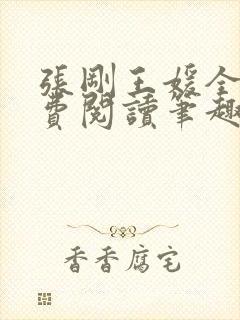 張剛王媛全
費閱讀筆趣
香香腐宅